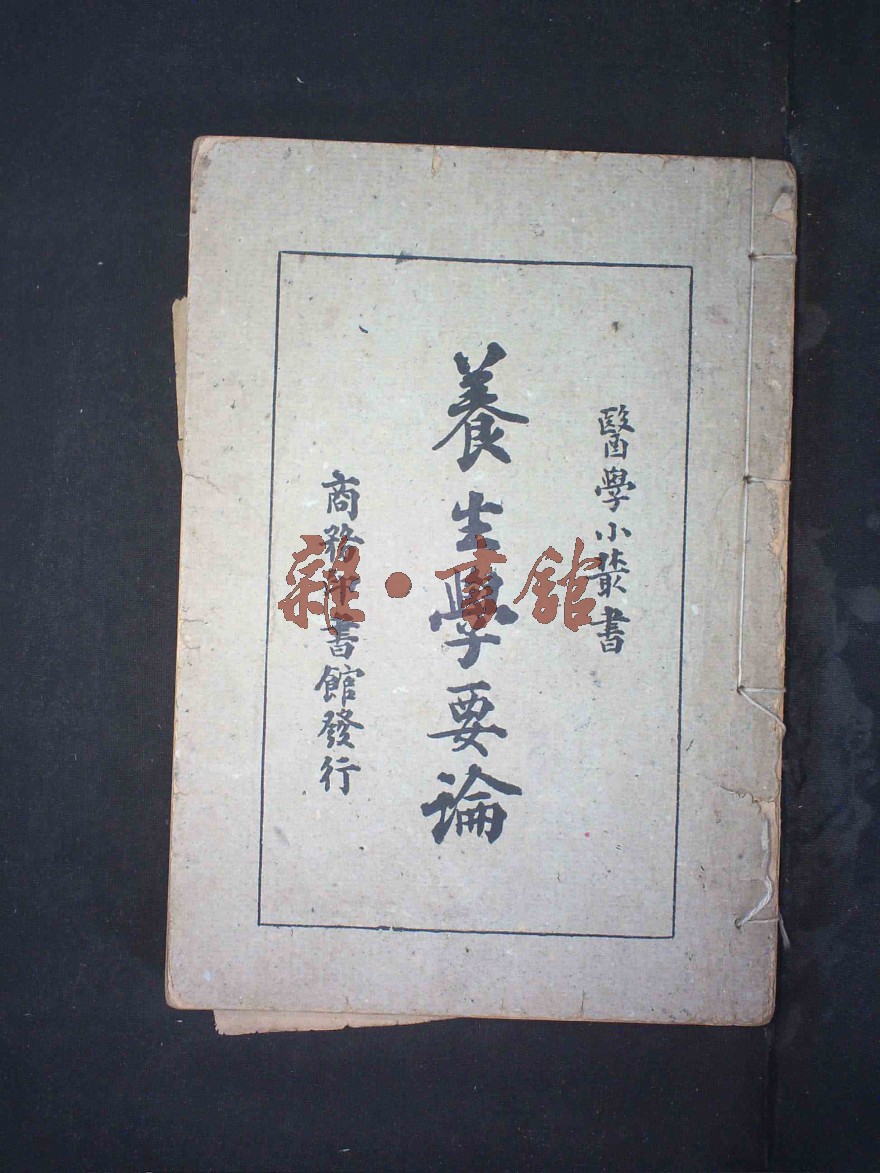 醫學小叢書
養生學要論
商務印書館發行
雜·書館